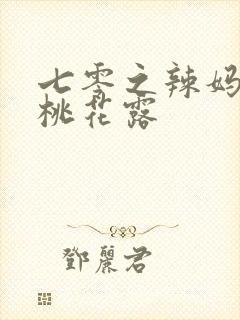 七零之辣妈
桃花露
鄧麗君